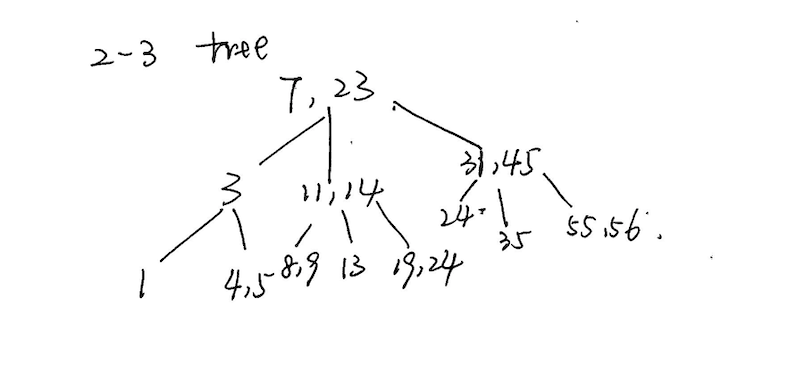 2-3 tree
7, 23
3 11, 14 31, 45
1 4, 5 8, 9 13 19, 24 24 35 55, 56